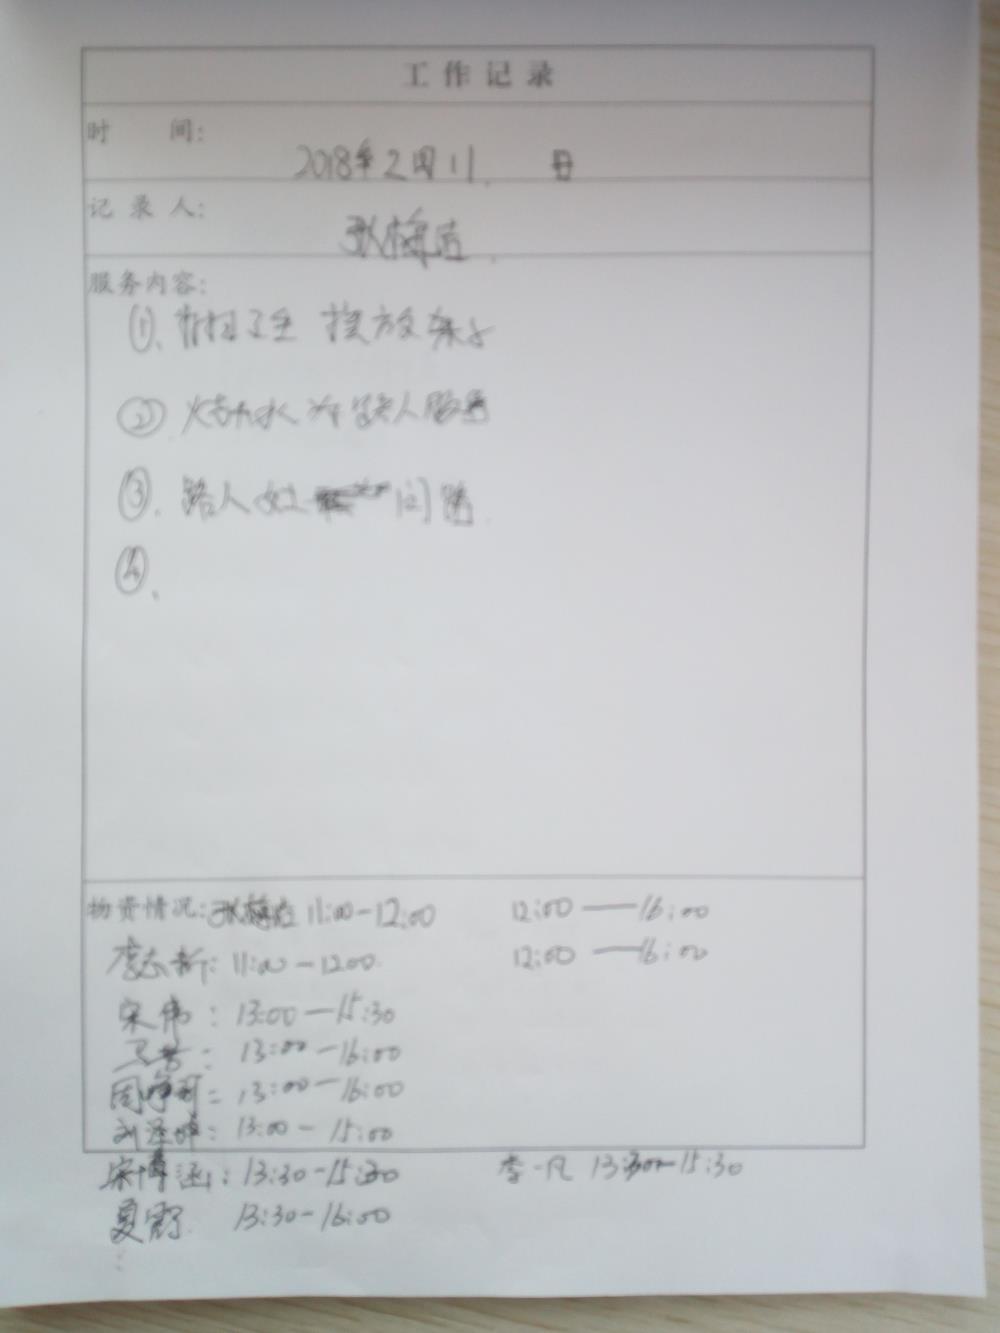 工作记录
时 间:
2018年2月11. 日
记录人:
张梅
服务内容:
①、打扫卫生 摆放桌子
② 烧水 为路人服务
③. 路人 问路.
④、
物资情况: 11:00-12:00 12:00——16:00
李志新: 11:00-1200. 12:00——16:00
宋伟: 13:00—15:30
13:00-16:00
周 : 13:00-16:00
刘 : 13:00- 15:00
宋博涵: 13:30-15:30 李一凡 13:30-15:30
夏 13:30-16:00